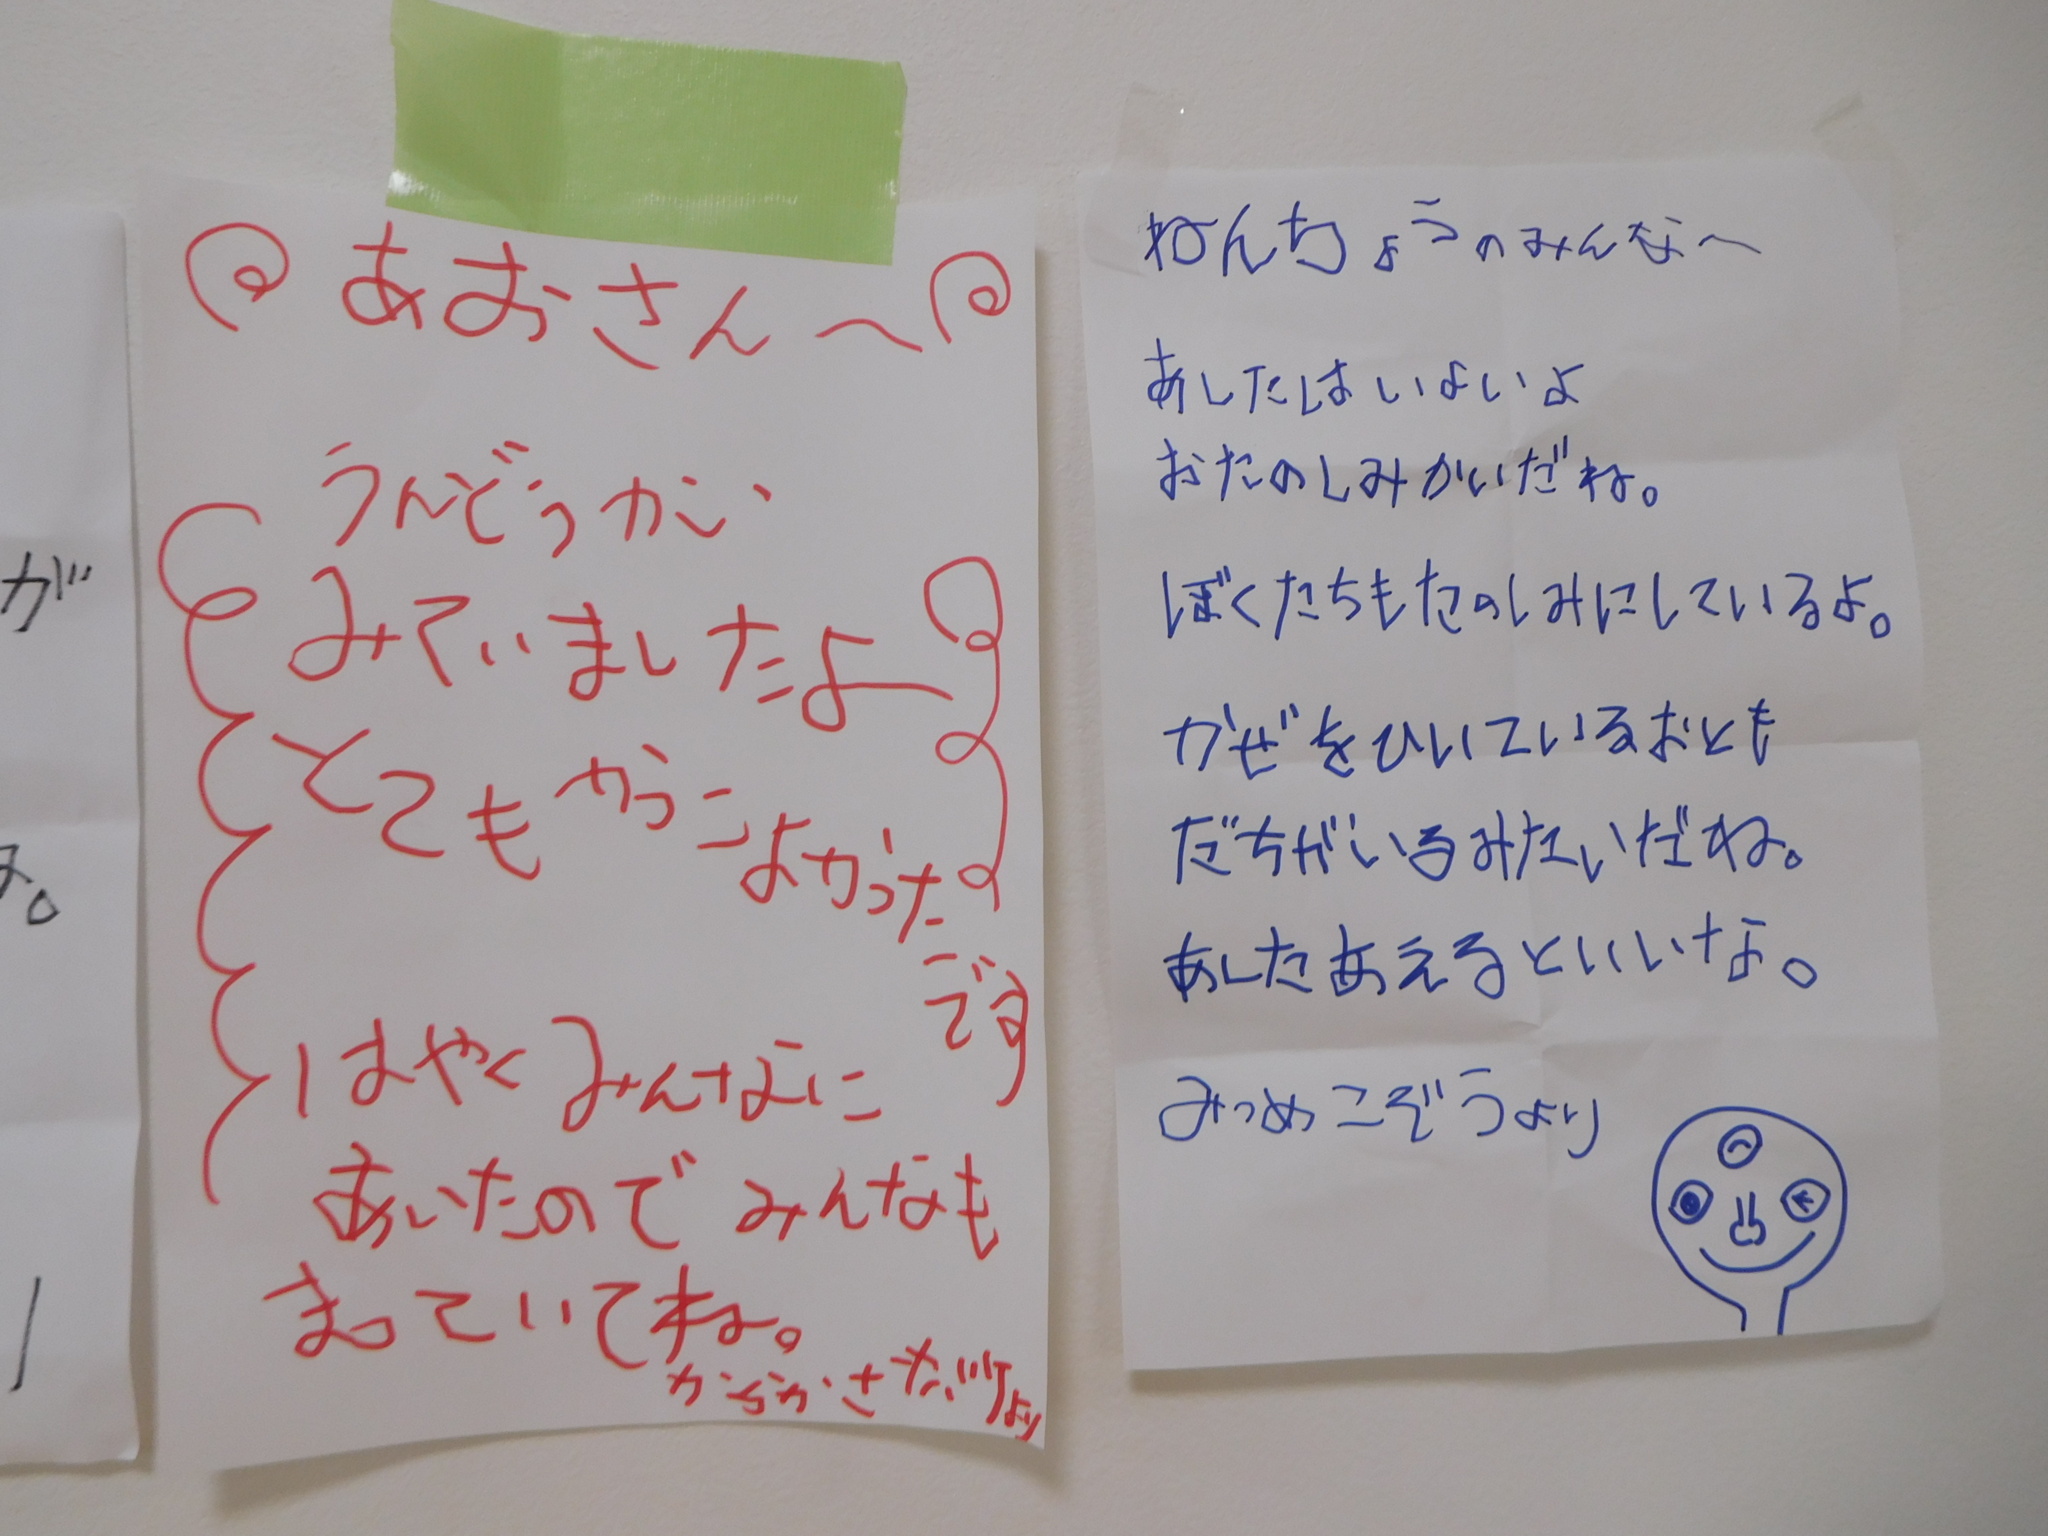 が
あおさんへ
うんどうかい
みていましたよ
とてもかっこよかった
です
はやくみんなに
あいたのでみんなも
まっていてね。
ねんちょうのみんなへ
あしたはいよいよ
おたのしみかいだね。
ぼくたちもたのしみにしているよ。
かぜをひいているおとも
だちがいるみたいだね。
あしたあえるといいなよ。
みつめこぞうより